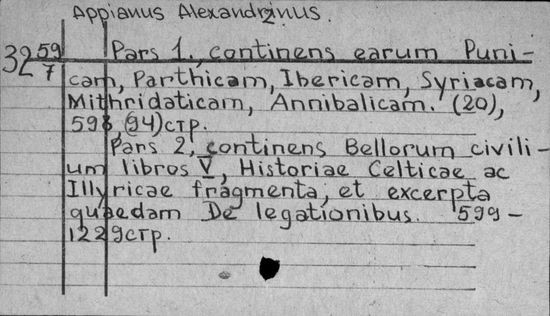 Appianus Alexandrinus.
32 59/7 Pars 1., continens earum Puni-
cam, Parthicam, Ibericam, Syriacam,
Mithridaticam, Annibalicam. (20),
598, (94)стр.
Pars 2, continens Bellorum civili-
um libros V, Historiae Celticae ac
Illyricae fragmenta, et excerpta
quaedam De legationibus. 599-
1229стр.